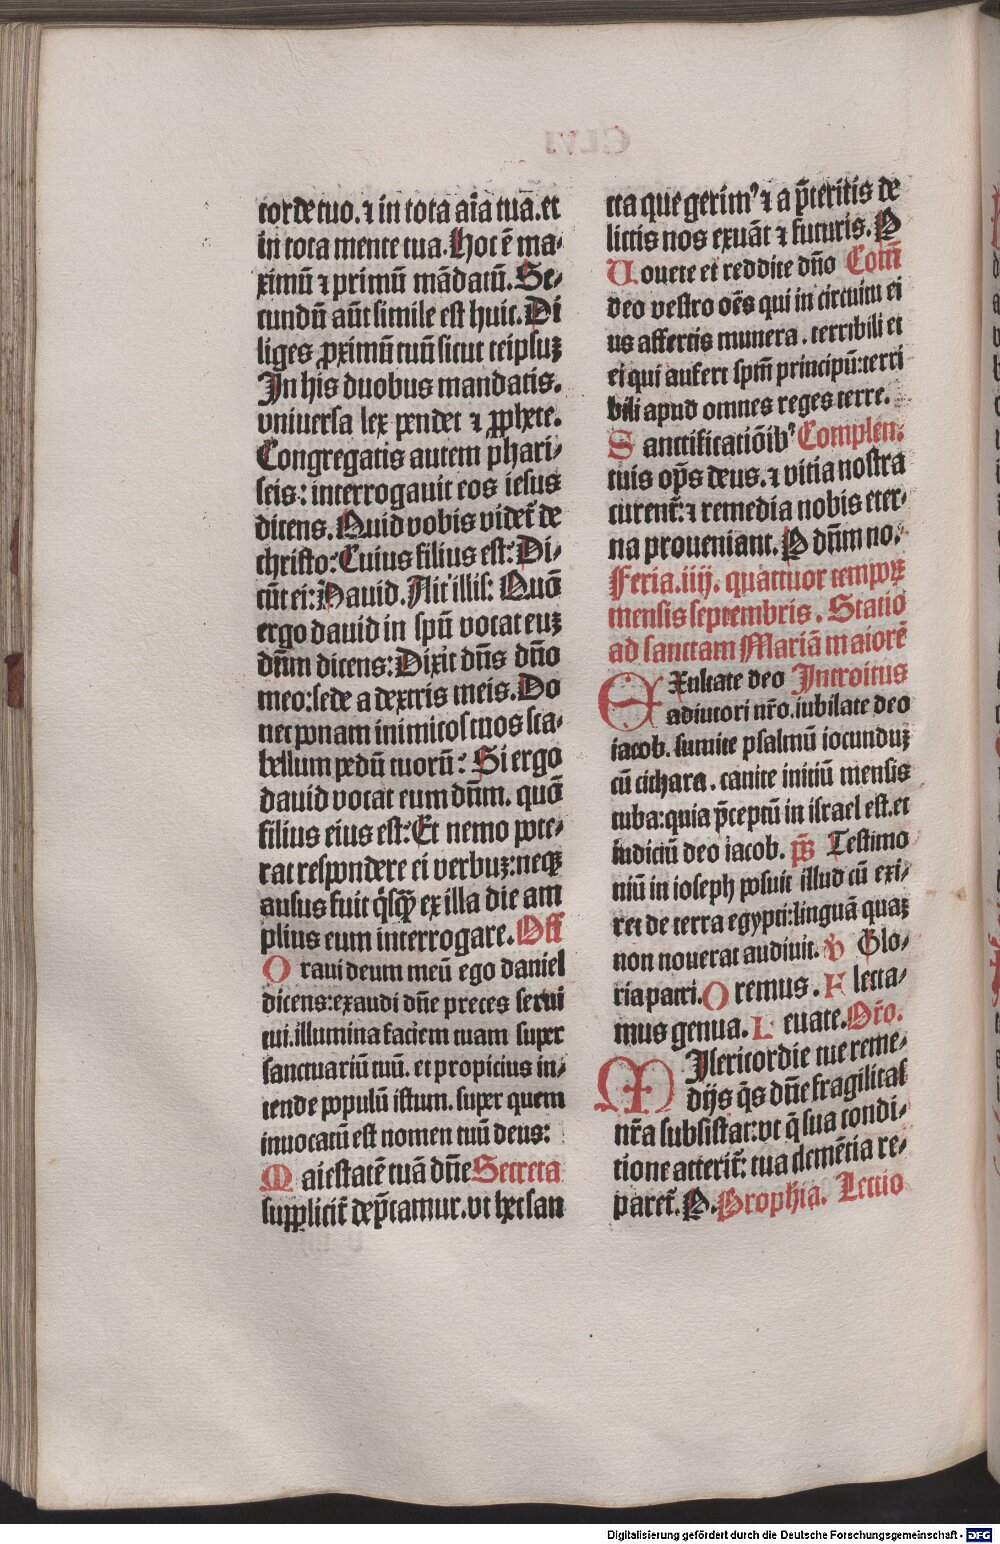 corde tuo. ⁊ in tota aīa tua. et
in tota mente tua. Hoc ē ma⸗
ximū ⁊ primū mādatū. Se⸗
cundū aūt simile est huic. Di
liges ꝓximū tuū sicut teipsuꝫ
In his duobus mandatis.
vniuersa lex pendet ⁊ ꝓphete.
Congregatis autem phari⸗
seis: interrogauit eos iesus
dicens. Quid vobis videt̄ de
christo: Cuius filius est: Di⸗
cūt ei: Dauid. Ait illis: Quō
ergo dauid in spū vocat euꝫ
dn̄m dicens: Dixit dn̄s dn̄o
meo: sede a dextris meis. Do
nec ponam inimicos tuos sca⸗
bellum pedū tuorū: Si ergo
dauid vocat eum dn̄m. quō
filius eius est: Et nemo pote⸗
rat respondere ei verbuꝫ: neqꝫ
ausus fuit q̄sqꝫ ex illa die am
plius eum interrogare. Off
Oraui deum meū ego daniel
dicens: exaudi dn̄e preces serui
tui. illumina faciem tuam super
sanctuariū tuū. et propicius in⸗
tende populū istum. super quem
inuocatū est nomen tuū deus:
Maiestatē tuā dn̄e Secreta
supplicit̄ dep̄camur. vt hec san
cta que gerimꝰ ⁊ a p̄teritis de
lictis nos exuāt ⁊ futuris. P
Uouete et reddite dn̄o Com̄
deo vestro oēs qui in circuitu ei
us affertis munera. terribili et
ei qui aufert spm̄ principū: terri
bili apud omnes reges terre.
Sanctificatiōibꝰ Complen.
tuis op̄s deus. ⁊ vitia nostra
curent̄: ⁊ remedia nobis eter⸗
na proueniant. P dn̄m no.
Feria. iiij. quattuor tempoꝝ
mensis septembris. Statio
ad sanctam Mariā maiorē
Exultate deo Introitus
adiutori nr̄o. iubilate deo
iacob. sumite psalmū iocunduꝫ
cū cithara. canite initiū mensis
tuba: quia p̄ceptū in israel est. et
iudiciū deo iacob. ps̄ Testimo
niū in ioseph posuit illud cū exi⸗
ret de terra egypti: linguā quaꝫ
non nouerat audiuit. v Glo⸗
ria patri. Oremus. Flecta⸗
mus genua. Leuate. Or̄o.
Misericordie tue reme⸗
dijs q̄s dn̄e fragilitas
nr̄a subsistat: vt q̄ sua condi⸗
tione atterit̄: tua clemētia re⸗
paret̄. P. Prophia. Lectio
Digitalisierung gefördert durch die Deutsche Forschungsgemeinschaft - DFG